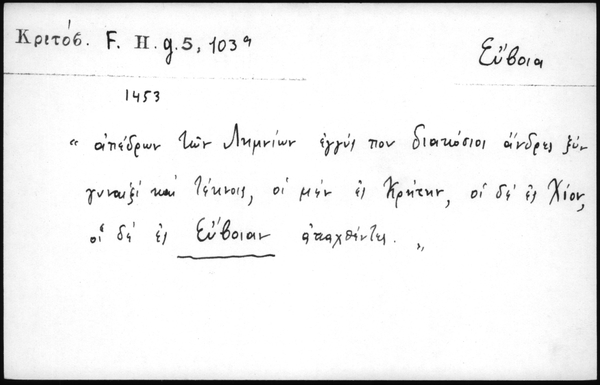 Κριτόβ. F. H. g. 5, 103ª
Εὔβοια
1453
“ ἀπέδρων τῶν Λημνίων ἐγγύς που διακόσιοι ἄνδρες ξὺν
γυναιξὶ καὶ τέκνοις, οἱ μὲν ἐς Κρήτην, οἱ δὲ ἐς Χίον,
οἱ δὲ ἐς Εὔβοιαν ἀπαχθέντες. „